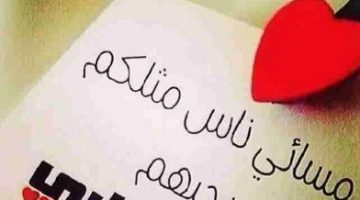 مسائي ناس مثلكم
يحبهم